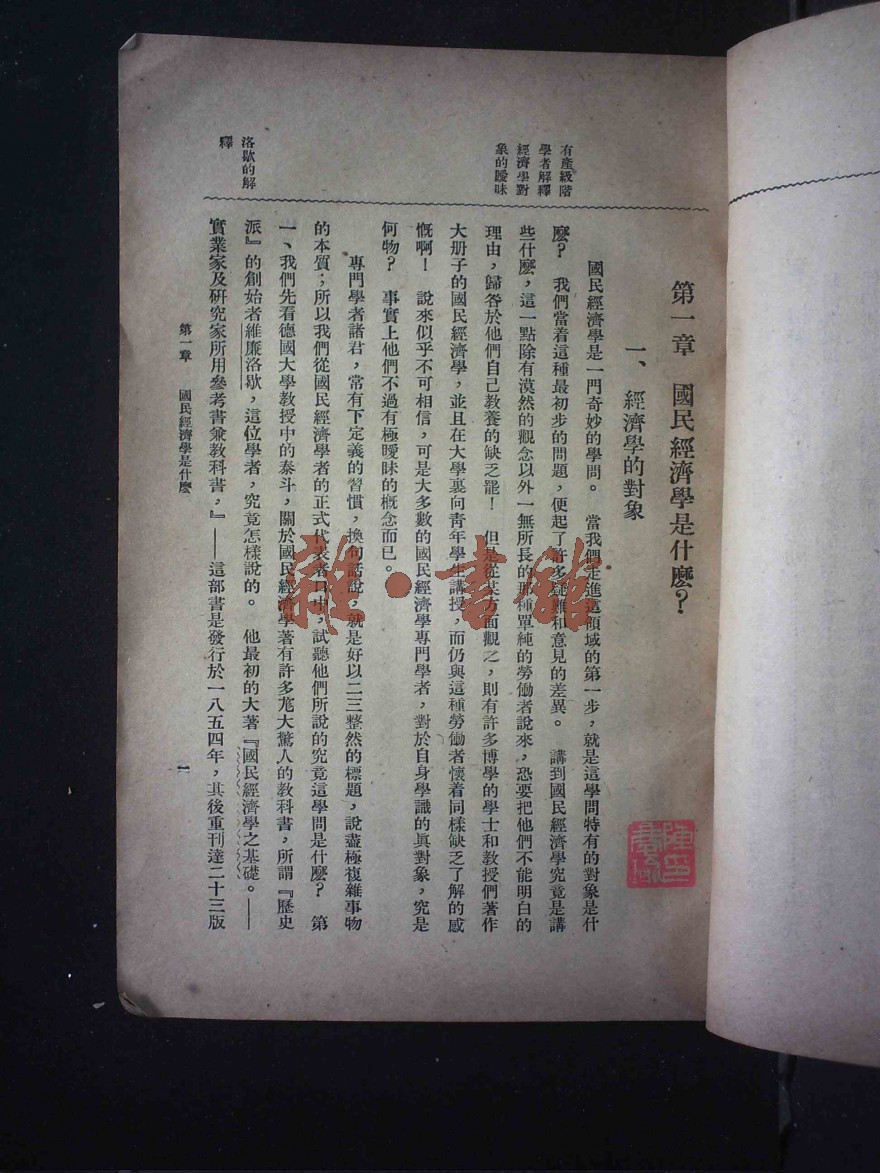 第一章　國民經濟學是什麽？
一、經濟學的對象
有產級階
學者解釋
經濟學對
象的曖昧
國民經濟學是一門奇妙的學問。　當我們走進這領域的第一步，就是這學問特有的對象是什
麽？　我們當着這種最初步的問題，便起了許多疑難和意見的差異。　講到國民經濟學究竟是講
些什麽，這一點除有漠然的觀念以外一無所長的那種單純的勞働者說來，恐要把他們不能明白的
理由，歸咎於他們自己教養的缺乏罷！　但是從某方面觀之，則有許多博學的學士和教授們著作
大册子的國民經濟學，並且在大學裏向靑年學生講授，而仍與這種勞働者懷着同樣缺乏了解的感
慨啊！　說來似乎不可相信，可是大多數的國民經濟學專門學者，對於自身學識的眞對象，究是
何物？　事實上他們不過有極曖昧的概念而已。
專門學者諸君，常有下定義的習慣，換句話說，就是好以二三整然的標題，說盡極複雜事物
的本質；所以我們從國民經濟學者的正式代表者口中，試聽他們所說的究竟這學問是什麽？　第
洛歇的解
釋
一、我們先看德國大學教授中的泰斗，關於國民經濟學著有許多尨大驚人的教科書，所謂『歷史
派』的創始者維廉洛歇，這位學者，究竟怎樣說的。　他最初的大著『國民經濟學之基礎。——
實業家及硏究家所用參考書兼教科書，』——這部書是發行於一八五四年，其後重刊達二十三版
第一章　國民經濟學是什麽
一
雜·書館